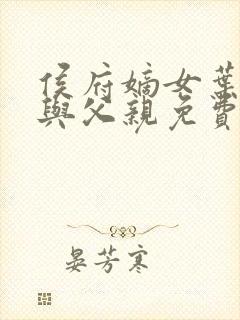 侯府嫡女葉
與父親免費
晏芳寒